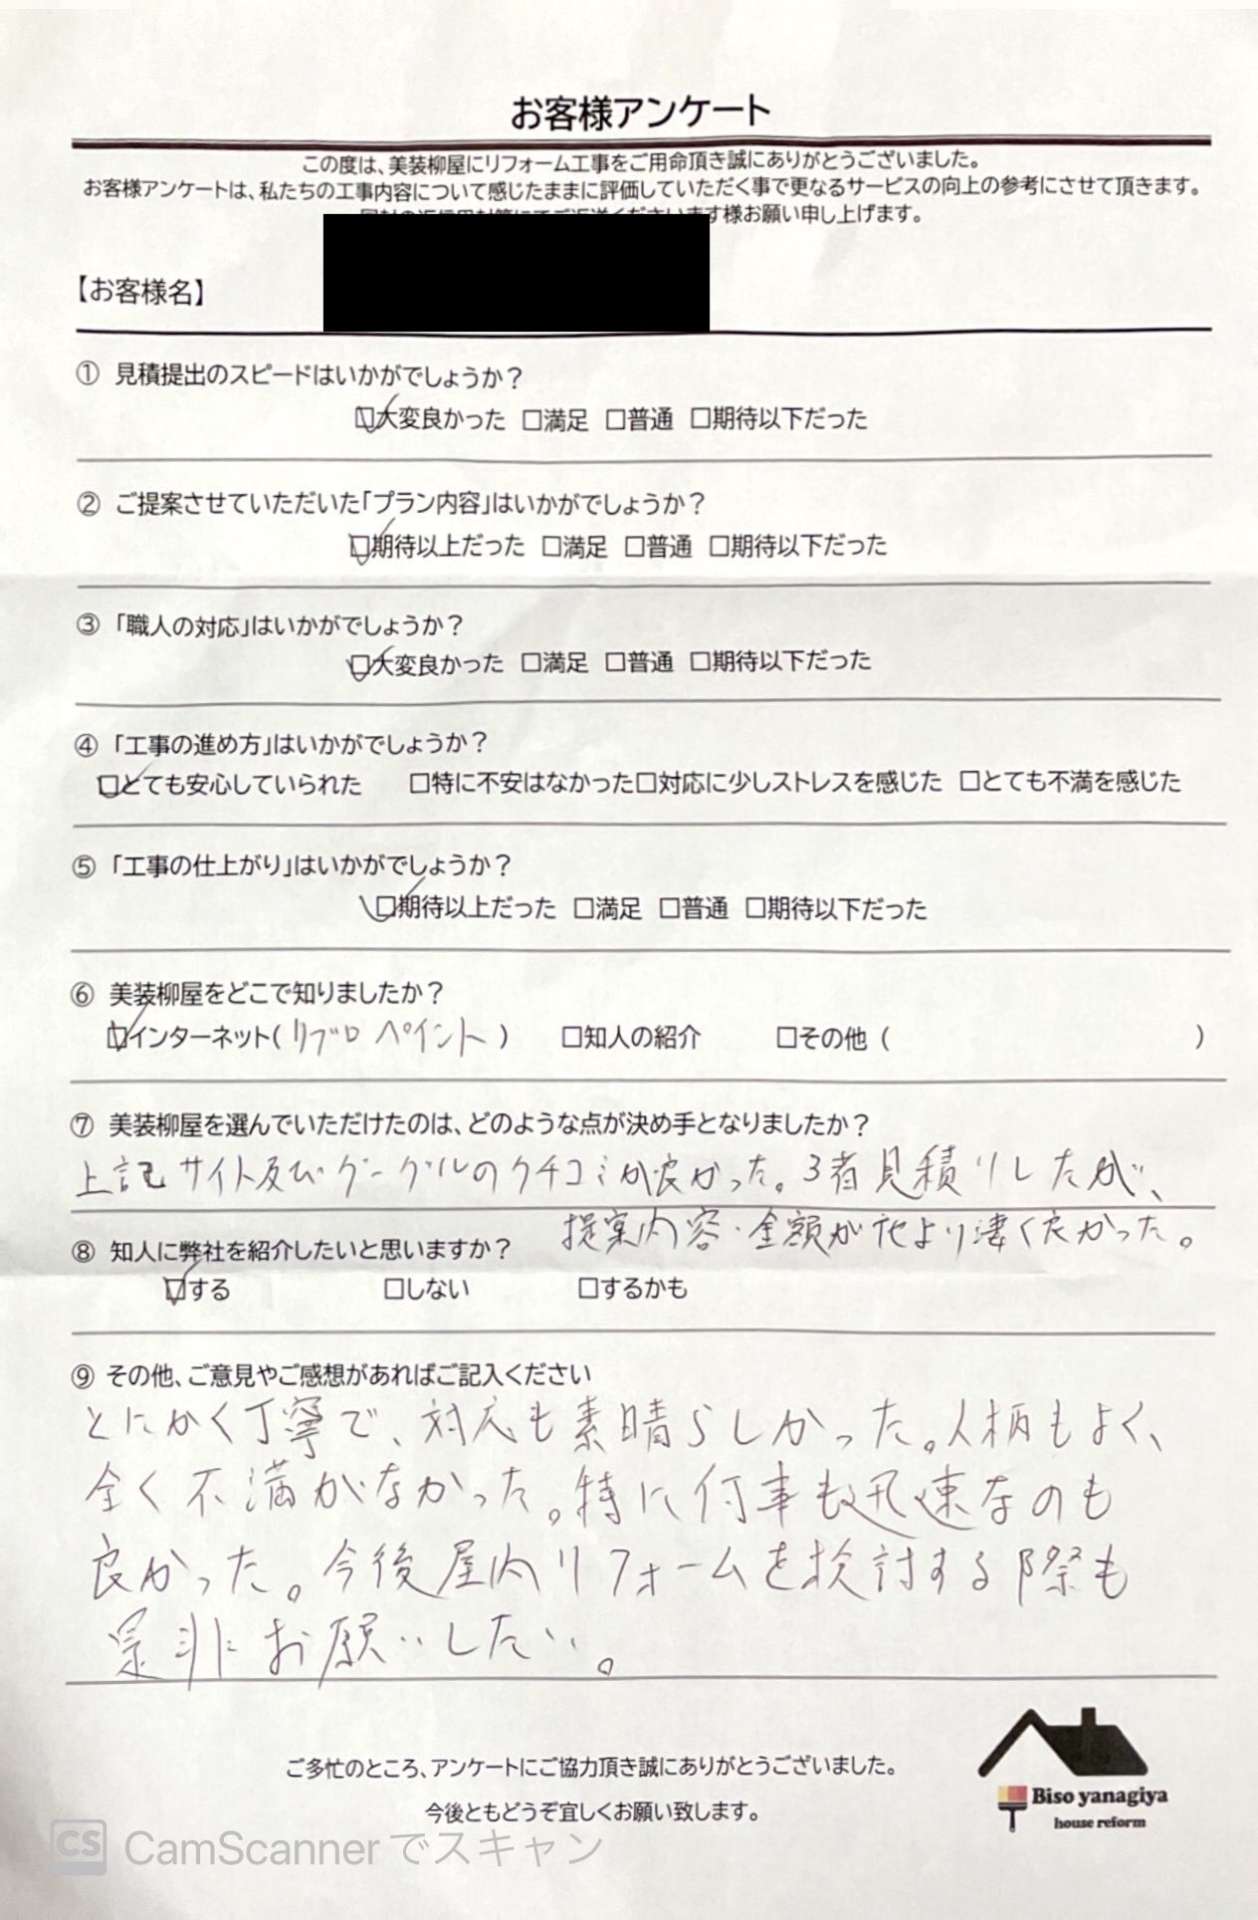 お客様アンケート
この度は、美装柳屋にリフォーム工事をご用命頂き誠にありがとうございました。
お客様アンケートは、私たちの工事内容について感じたままに評価していただく事で更なるサービスの向上の参考にさせて頂きます。
様お願い申し上げます。
【お客様名】
① 見積提出のスピードはいかがでしょうか？
☑大変良かった □満足 □普通 □期待以下だった
② ご提案させていただいた「プラン内容」はいかがでしょうか？
☑期待以上だった □満足 □普通 □期待以下だった
③ 「職人の対応」はいかがでしょうか？
☑大変良かった □満足 □普通 □期待以下だった
④ 「工事の進め方」はいかがでしょうか？
☑とても安心していられた □特に不安はなかった□対応に少しストレスを感じた □とても不満を感じた
⑤ 「工事の仕上がり」はいかがでしょうか？
☑期待以上だった □満足 □普通 □期待以下だった
⑥ 美装柳屋をどこで知りましたか？
☑インターネット( リブロ ペイント ) □知人の紹介 □その他 ( )
⑦ 美装柳屋を選んでいただけたのは、どのような点が決め手となりましたか？
上記サイト及びグーグルのクチコミが良かった。3者見積りしたが、
提案内容・金額が他より凄く良かった。
⑧ 知人に弊社を紹介したいと思いますか？
☑する □しない □するかも
⑨ その他、ご意見やご感想があればご記入ください
とにかく丁寧で、対応も素晴らしかった。人柄もよく、
全く不満がなかった。特に何事も迅速なのも
良かった。今後屋内リフォームを検討する際も
是非お願いしたい。
ご多忙のところ、アンケートにご協力頂き誠にありがとうございました。
今後ともどうぞ宜しくお願い致します。
Biso yanagiya
house reform
CS CamScanner でスキャン